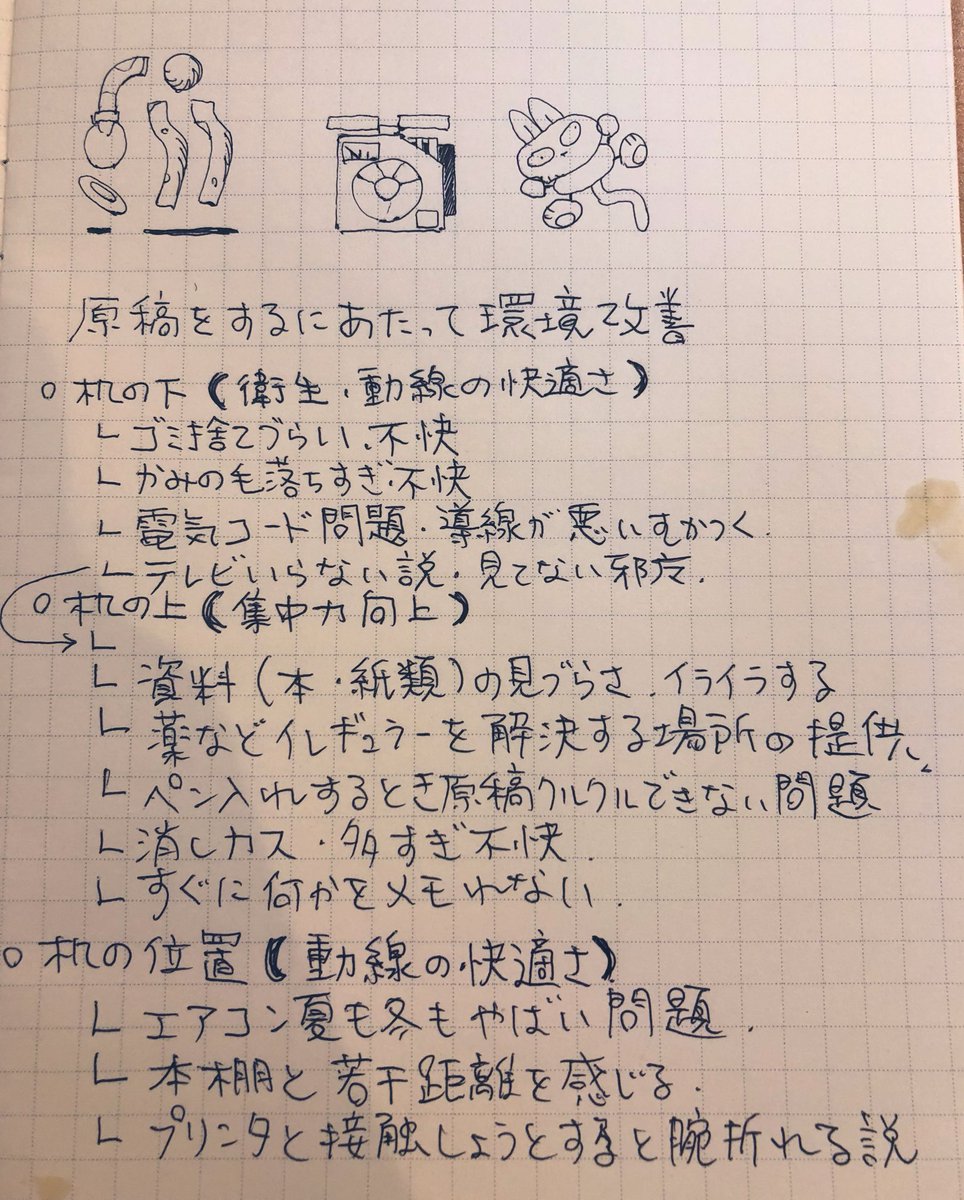 原稿をするにあたって環境改善
○ 机の下（衛生・動線の快適さ）
└ ゴミ捨てづらい、不快
└ かみの毛落ちすぎ・不快
└ 電気コード問題・導線が悪いむかつく.
└ テレビいらない説・見てない邪魔.
○ 机の上（集中力向上）
└
└ 資料(本・紙類)の見づらさ、イライラする
└ 薬などイレギュラーを解決する場所の提供、
└ ペン入れするとき原稿クルクルできない問題
└ 消しカス・多すぎ不快.
└ すぐに何かをメモれない.
○ 机の位置（動線の快適さ）
└ エアコン夏も冬もやばい問題.
└ 本棚と若干距離を感じる.
└ プリンタと接触しようとすると腕折れる説